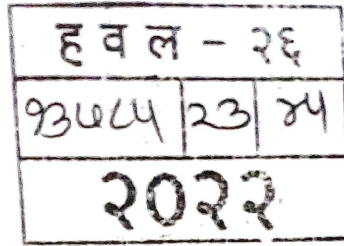 ह व ल - २६
१३७८५ २३ ४५
२०२२